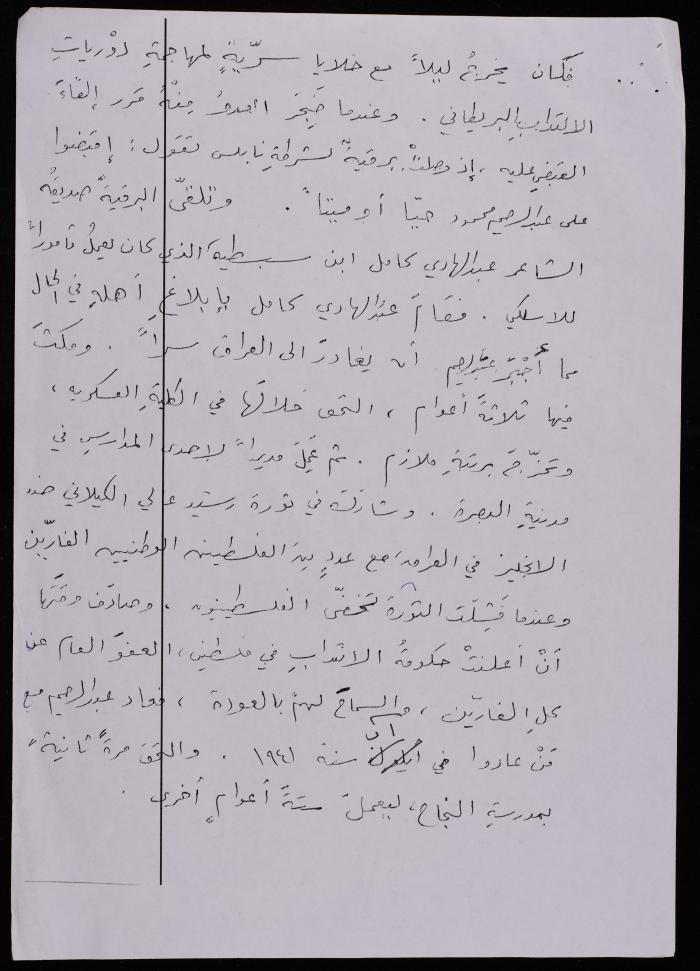 فكان يخرجُ ليلاً مع خلايا سرّيةٍ لمهاجمةِ دوْرياتِ
الانتدابِ البريطاني . وعندما ضَجَر العدوُ مِنْهُ قرر إلقاءَ
القبضِ عليه ، إذ وصلتْ برقيةٌ لشرطةِ نابلس تقول : إقبضوا
على عبدالرحيم محمود حيّاً أو ميتاً . وتلقّى البرقيةَ صديقُه
الشاعر عبدالهادي كامل ابن سبسطية الذي كان يعملُ مأموراً
للاسلكي . فقامَ عبدالهادي كامل بإبلاغِ أهلهِ في الحال
مما أُجْبَرَ عبدالرحيم أن يغادرَ الى العراق سراً . ومكثَ
فيها ثلاثةَ أعوام ، التحق خلالَها في الكليةِ العسكريه ،
وتخرّجَ برتبةِ ملازم . ثم عَمِلَ مديراً لإحدى المدارسِ في
مدينةِ البصرة . وشاركَ في ثورة رشيد عالي الكيلاني ضد
الانجليز في العراق مع عددٍ مِنَ الفلسطينين الوطنيين الفارّين
وعندما فَشِلَت الثورة تخفّى الفلسطينيون ، وصادَف وقتَها
أنْ أعلنتْ حكومةُ الانتدابِ في فلسطين ، العفوَ العام عن
كلِ الفارّين ، والسماحَ لهمْ بالعودة ، فعاد عبدالرحيم مع
مَنْ عادوا في آب سنة ١٩٤١ . والتحقَ مرةً ثانيةً
بمدرسةِ النجاح ، ليعملَ ستةَ أعوامٍ أخرى .